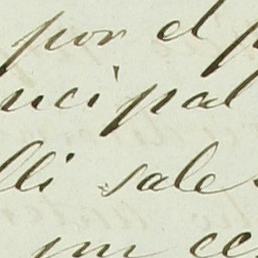 por el p
ncipal
lli sale